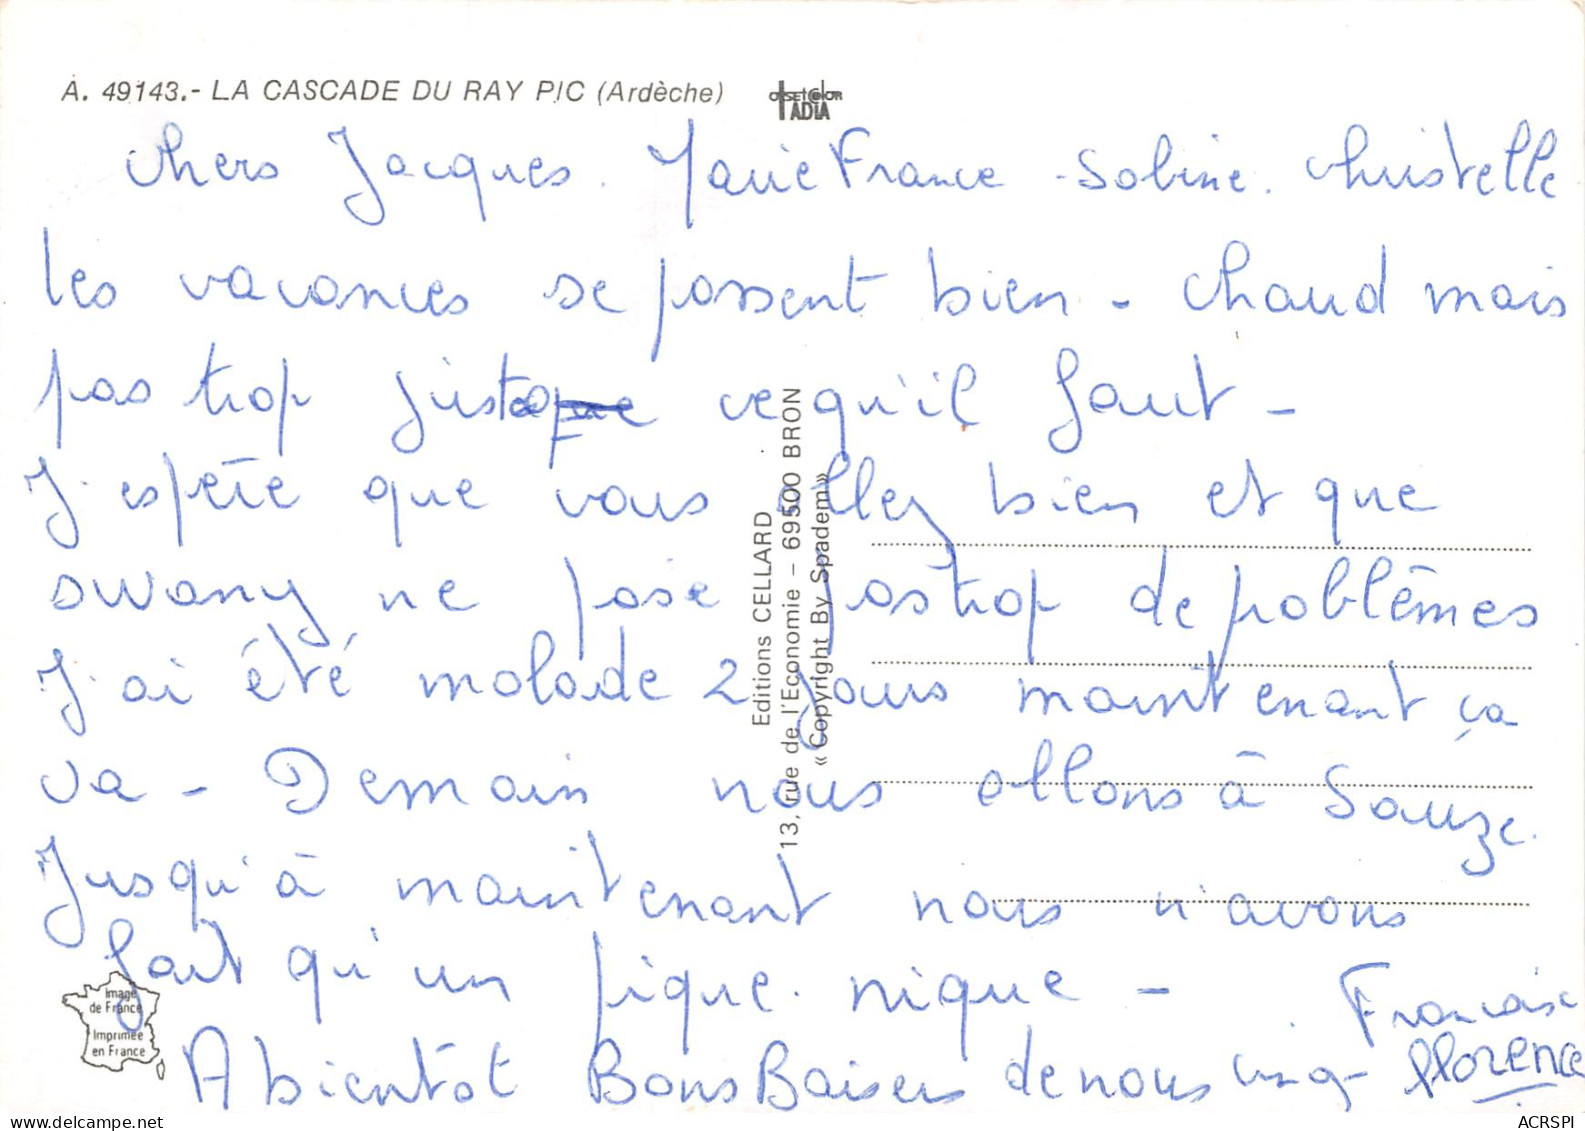 A. 49143.- LA CASCADE DU RAY PIC (Ardèche)
offset color
ADIA
Chers Jacques. Marie France - Sabine. Christelle
les vacances se passent bien - Chaud mais
pas trop juste ce qu'il faut -
J'espère que vous allez bien et que
swany ne pose pas trop de problêmes
J'ai été malade 2 jours maintenant ça
va - Demain nous allons à Sauze.
Jusqu'à maintenant nous n'avons
fait qu'un pique.nique -
A bientôt Bons Baisers de nous cinq -
Françoise
florence
Editions CELLARD
13, rue de l'Economie - 69500 BRON
« Copyright By Spadem »
Image
de France
Imprimée
en France
ACRSPI